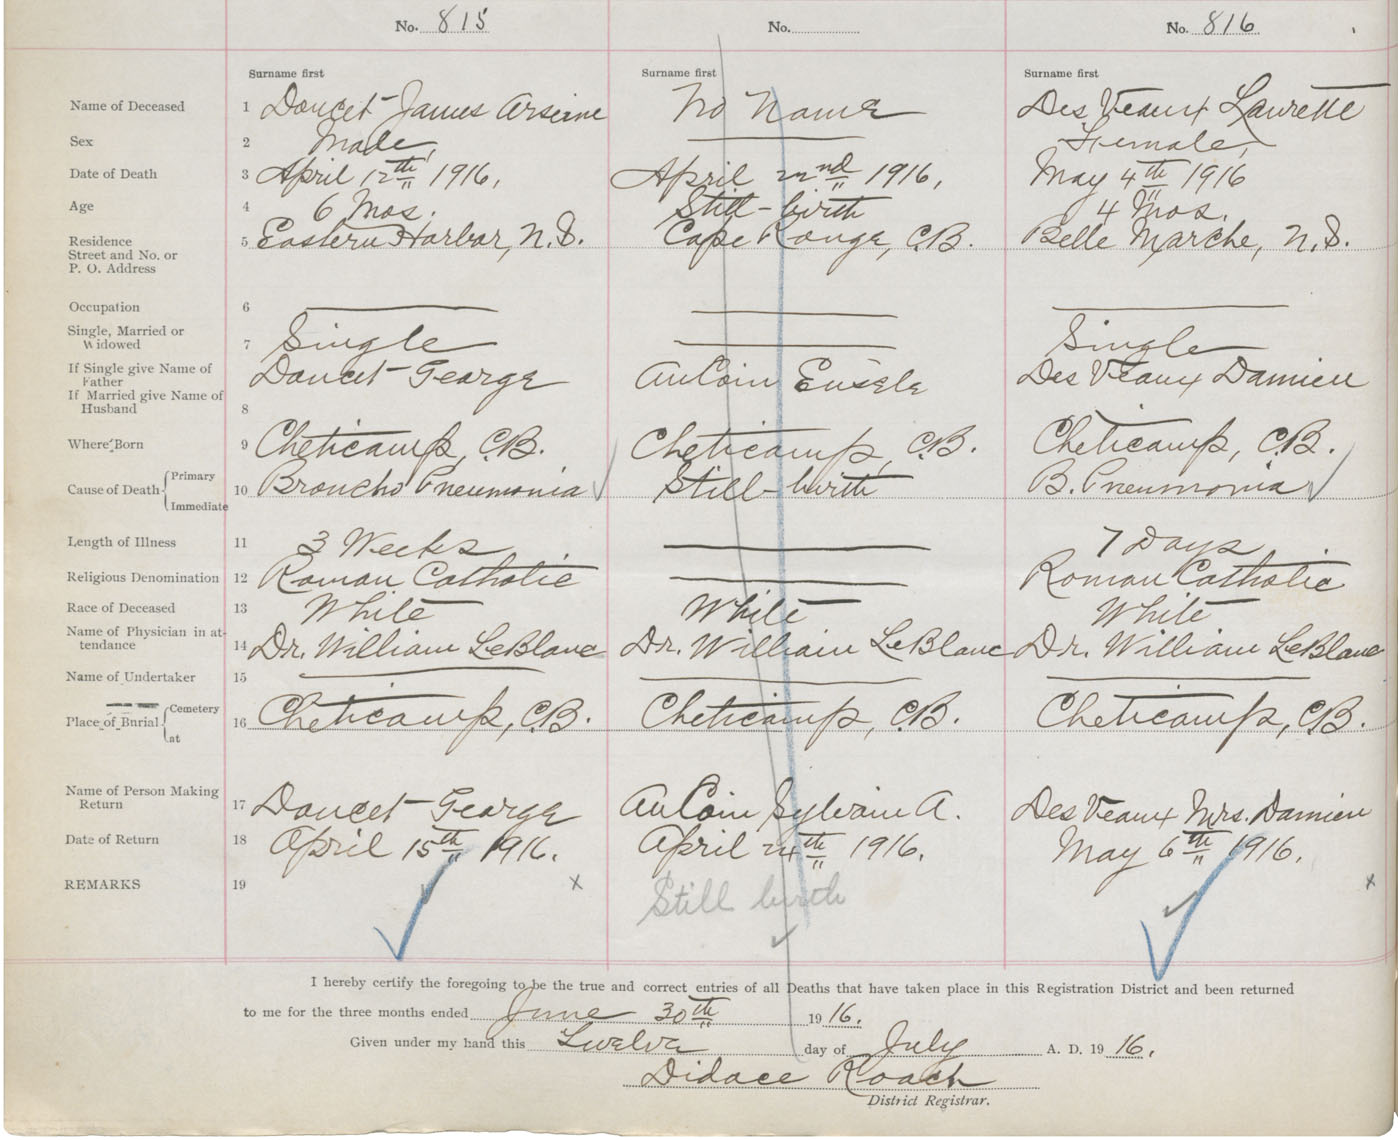 No. 815 No. No. 816
Surname first Surname first Surname first
Name of Deceased 1 Doucet James Arseine No Name Des Veaux Laurette
Sex 2 Male, Female,
Date of Death 3 April 12th 1916, April 22nd 1916, May 4th 1916
Age 4 6 Mos. Still-birth 4 Mos.
Residence 5 Eastern Harbor, N.S. Cape Rouge, C.B. Belle Marche, N.S.
Street and No. or
P. O. Address
Occupation 6
Single, Married or
Widowed 7 Single Single
If Single give Name of
Father Doucet George AuCoin Eusele Des Veaux Damien
If Married give Name of
Husband 8
Where Born 9 Cheticamp, C.B. Cheticamp, C.B. Cheticamp, C.B.
Cause of Death { Primary
10 Broncho Pneumonia Still-birth B. Pneumonia
Immediate
Length of Illness 11 3 Weeks 7 Days
Religious Denomination 12 Roman Catholic Roman Catholic
Race of Deceased 13 White White White
Name of Physician in at-
tendance 14 Dr. William LeBlanc Dr. William LeBlanc Dr. William LeBlanc
Name of Undertaker 15
Place of Burial { Cemetery
16 Cheticamp, C.B. Cheticamp, C.B. Cheticamp, C.B.
at
Name of Person Making
Return 17 Doucet George AuCoin Sylvain A. Des Veaux Mrs. Damien
Date of Return 18 April 15th 1916. April 24th 1916. May 6th 1916.
REMARKS 19 x Still birth x
I hereby certify the foregoing to be the true and correct entries of all Deaths that have taken place in this Registration District and been returned
to me for the three months ended June 30th 1916.
Given under my hand this Twelve day of July A. D. 1916.
Didace Roach
District Registrar.